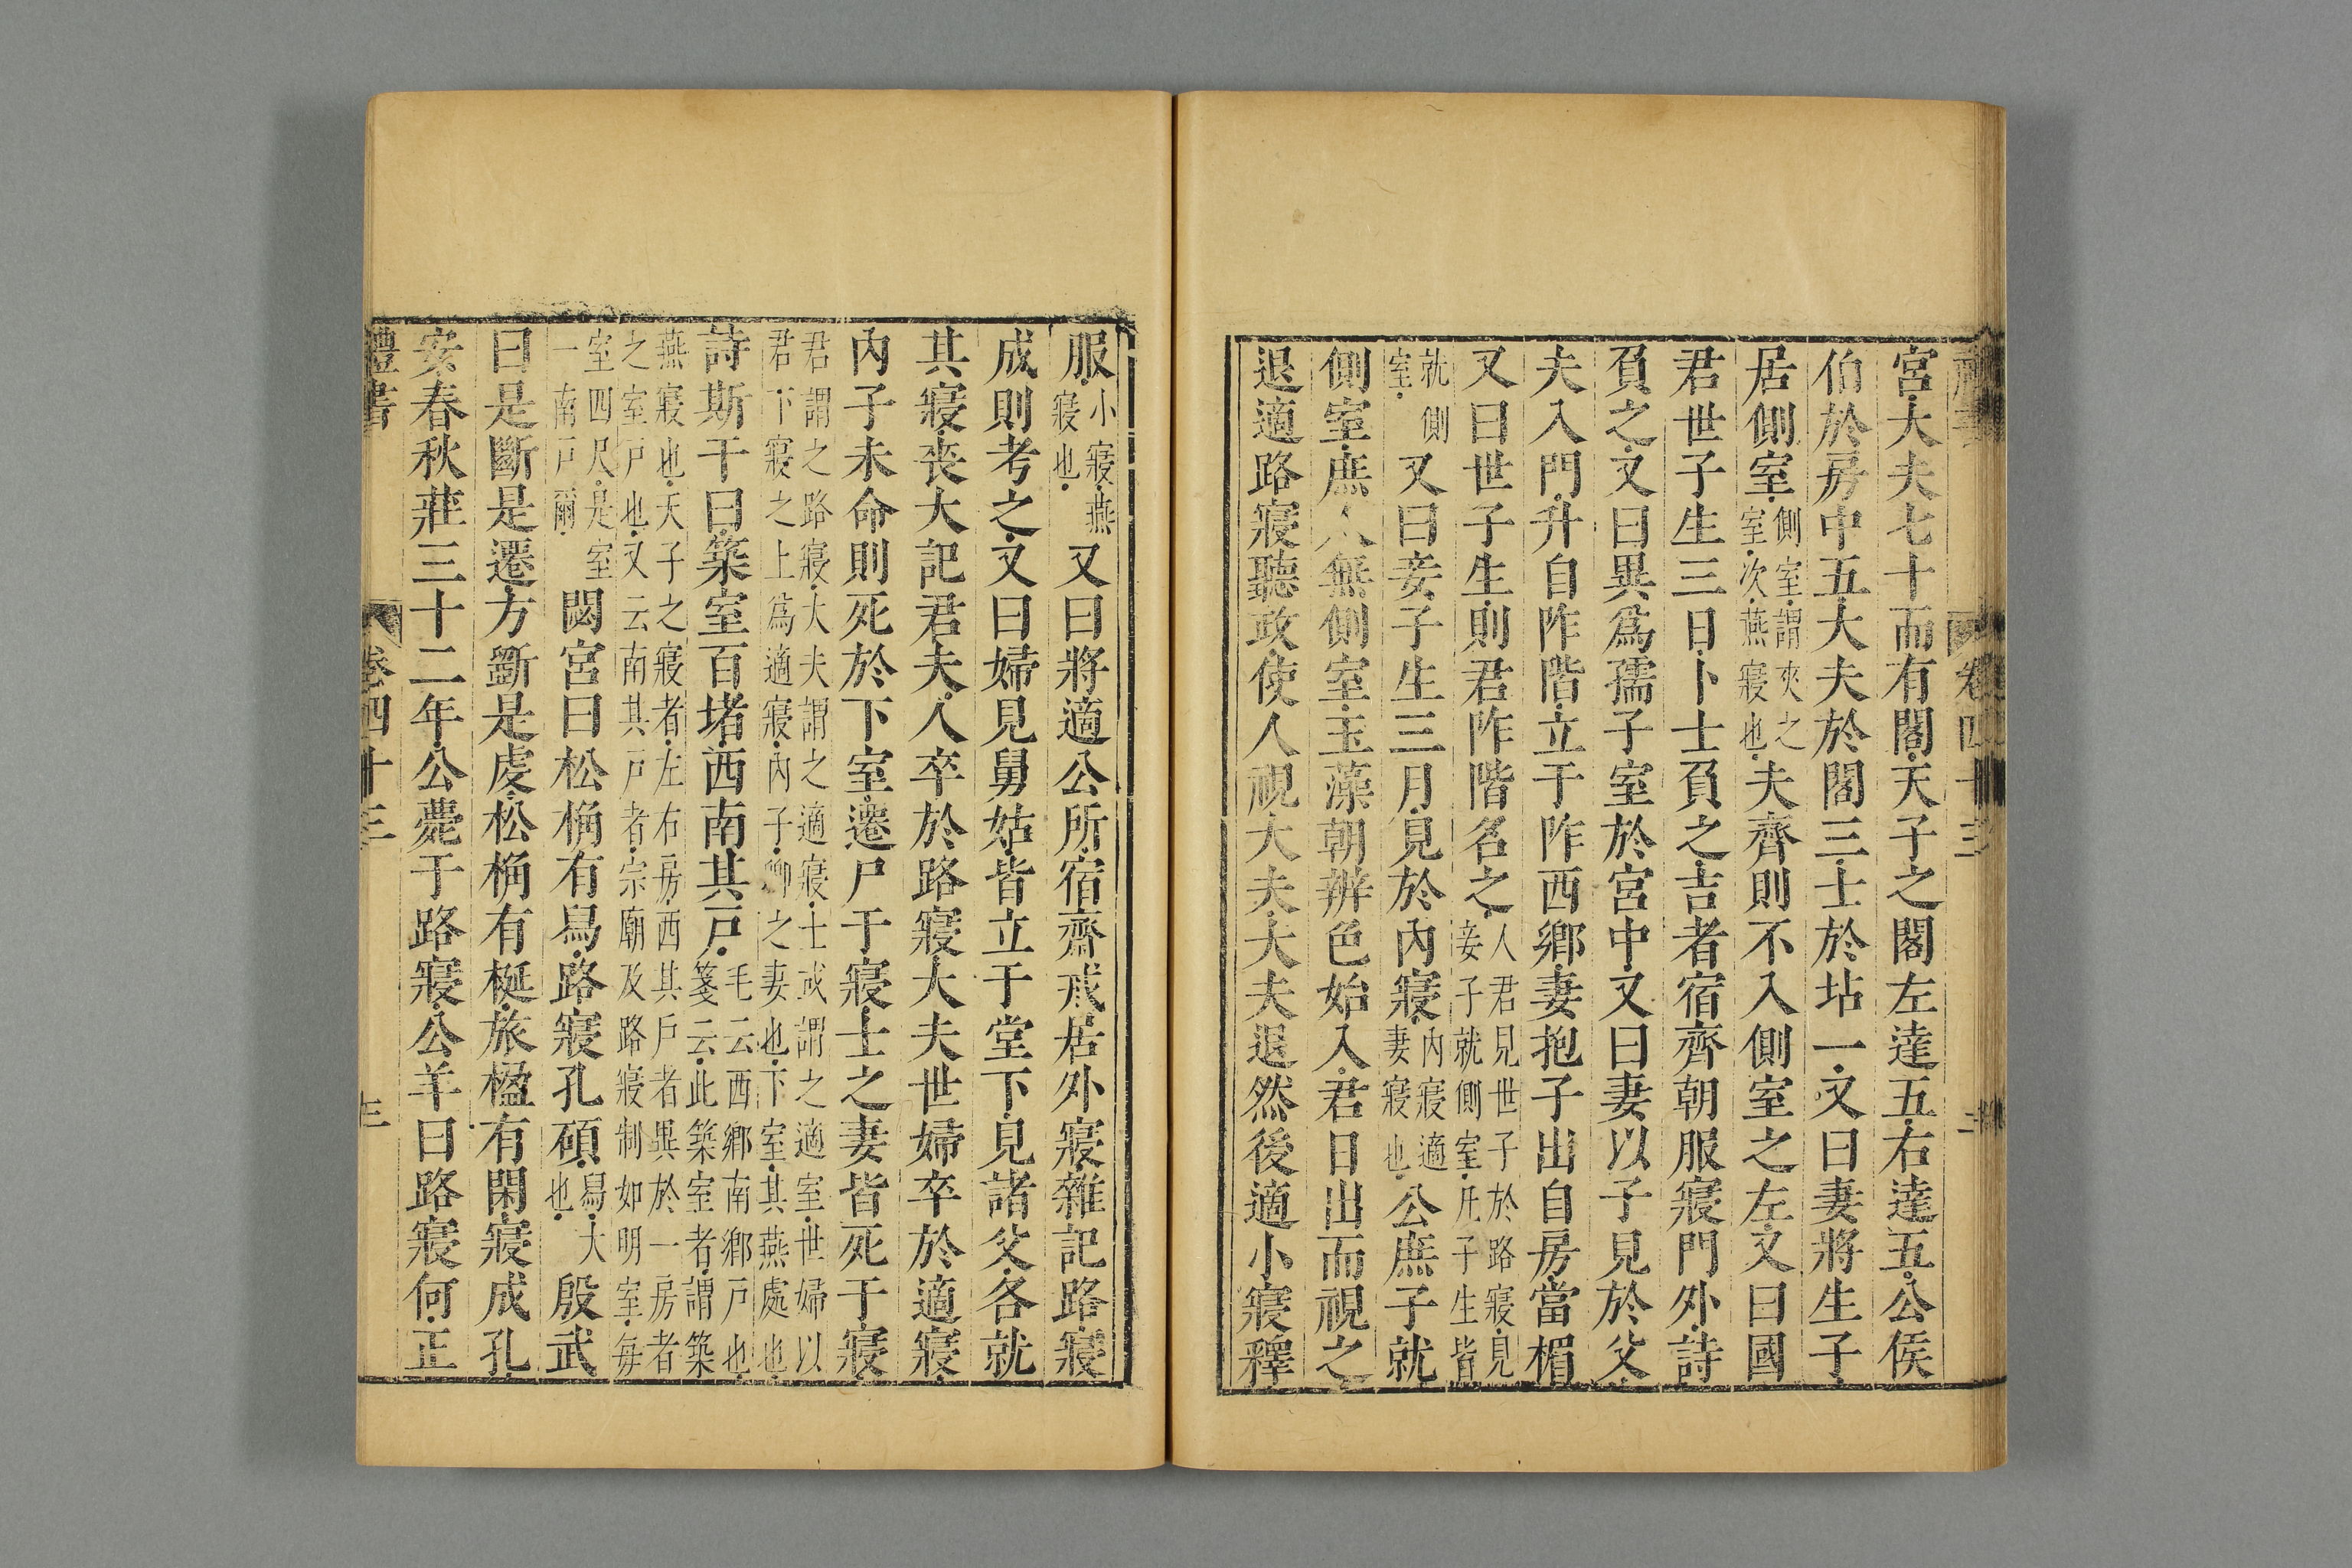 宮大夫七十而有閣天子之閣左達五右達五公侯
伯於房中五大夫於閣三士於坫一又曰妻將生子
居側室側室謂夾之室次燕寢也夫齊則不入側室之左又曰國
君世子生三日卜士負之吉者宿齊朝服寢門外詩
負之又曰異爲孺子室於宮中又曰妻以子見於父
夫入門升自阼階立于阼西鄉妻抱子出自房當楣
又曰世子生則君阼階名之人君見世子於路寢見妾子就側室凡子生皆
就側室又曰妾子生三月見於內寢內寢適妻寢也公庶子就
側室庶人無側室玉藻朝辨色始入君日出而視之
退適路寢聽政使人視大夫大夫退然後適小寢釋
服小寢燕寢也又曰將適公所宿齊戒居外寢雜記路寢
成則考之又曰婦見舅姑皆立于堂下見諸父各就
其寢喪大記君夫人卒於路寢大夫世婦卒於適寢
內子未命則死於下室遷尸于寢士之妻皆死于寢
君謂之路寢大夫謂之適寢士或謂之適室世婦以君下寢之上爲適寢內子卿之妻也下室其燕處也
詩斯干曰築室百堵西南其戶毛云西鄉南鄉戶也箋云此築室者謂築
燕寢也天子之寢者左右房西其戶者異於一房者之室戶也又云南其戶者宗廟及路寢制如明室每
室四尺是室一南戶爾閟宮曰松桷有舃路寢孔碩舃大也殷武
曰是斷是遷方斵是虔松桷有梴旅楹有閑寢成孔
安春秋莊三十二年公薨于路寢公羊曰路寢何正
禮書 卷四十三 三